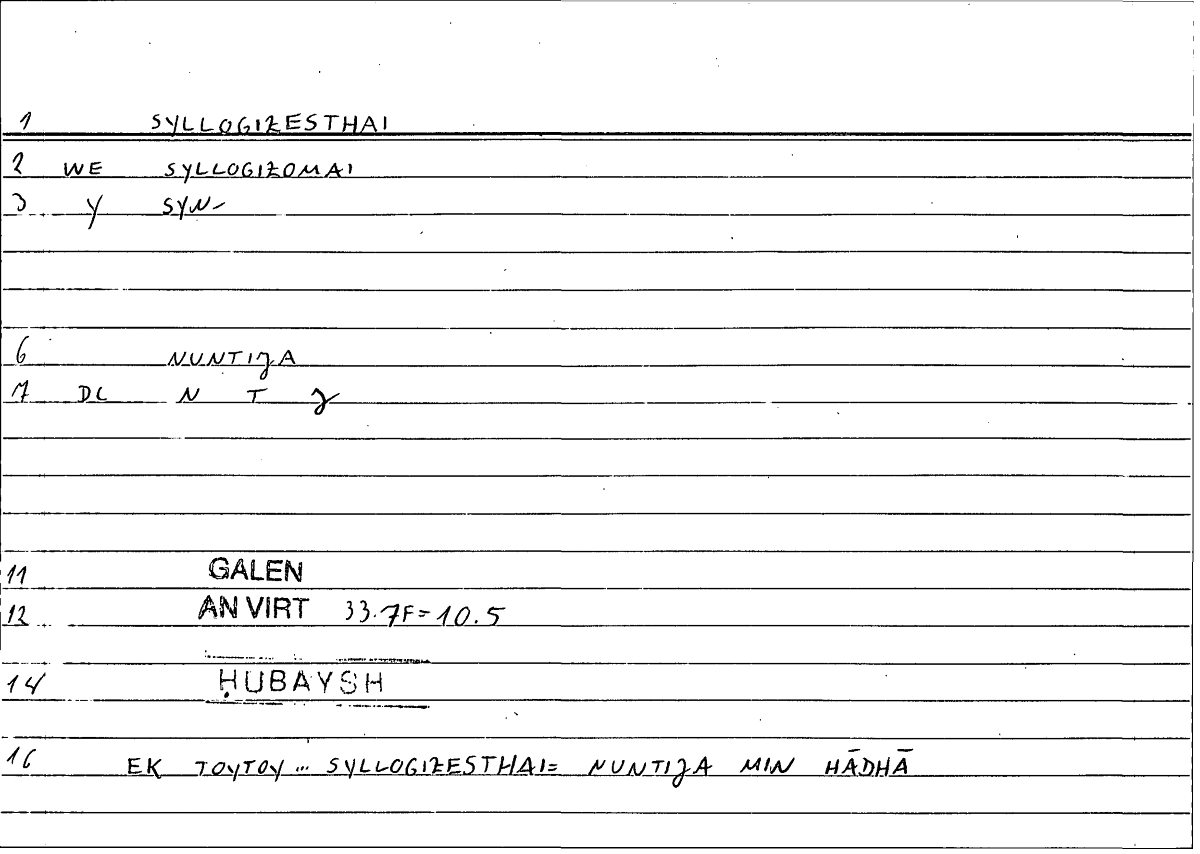 1 SYLLOGIZESTHAI
2 WE SYLLOGIZOMAI
3 Y SYN-
6 NUNTIJA
7 DC N T J
11 GALEN
12 AN VIRT 33.7F=10.5
14 ḤUBAYSH
16 EK TOYTOY... SYLLOGIZESTHAI= NUNTIJA MIN HĀDHĀ